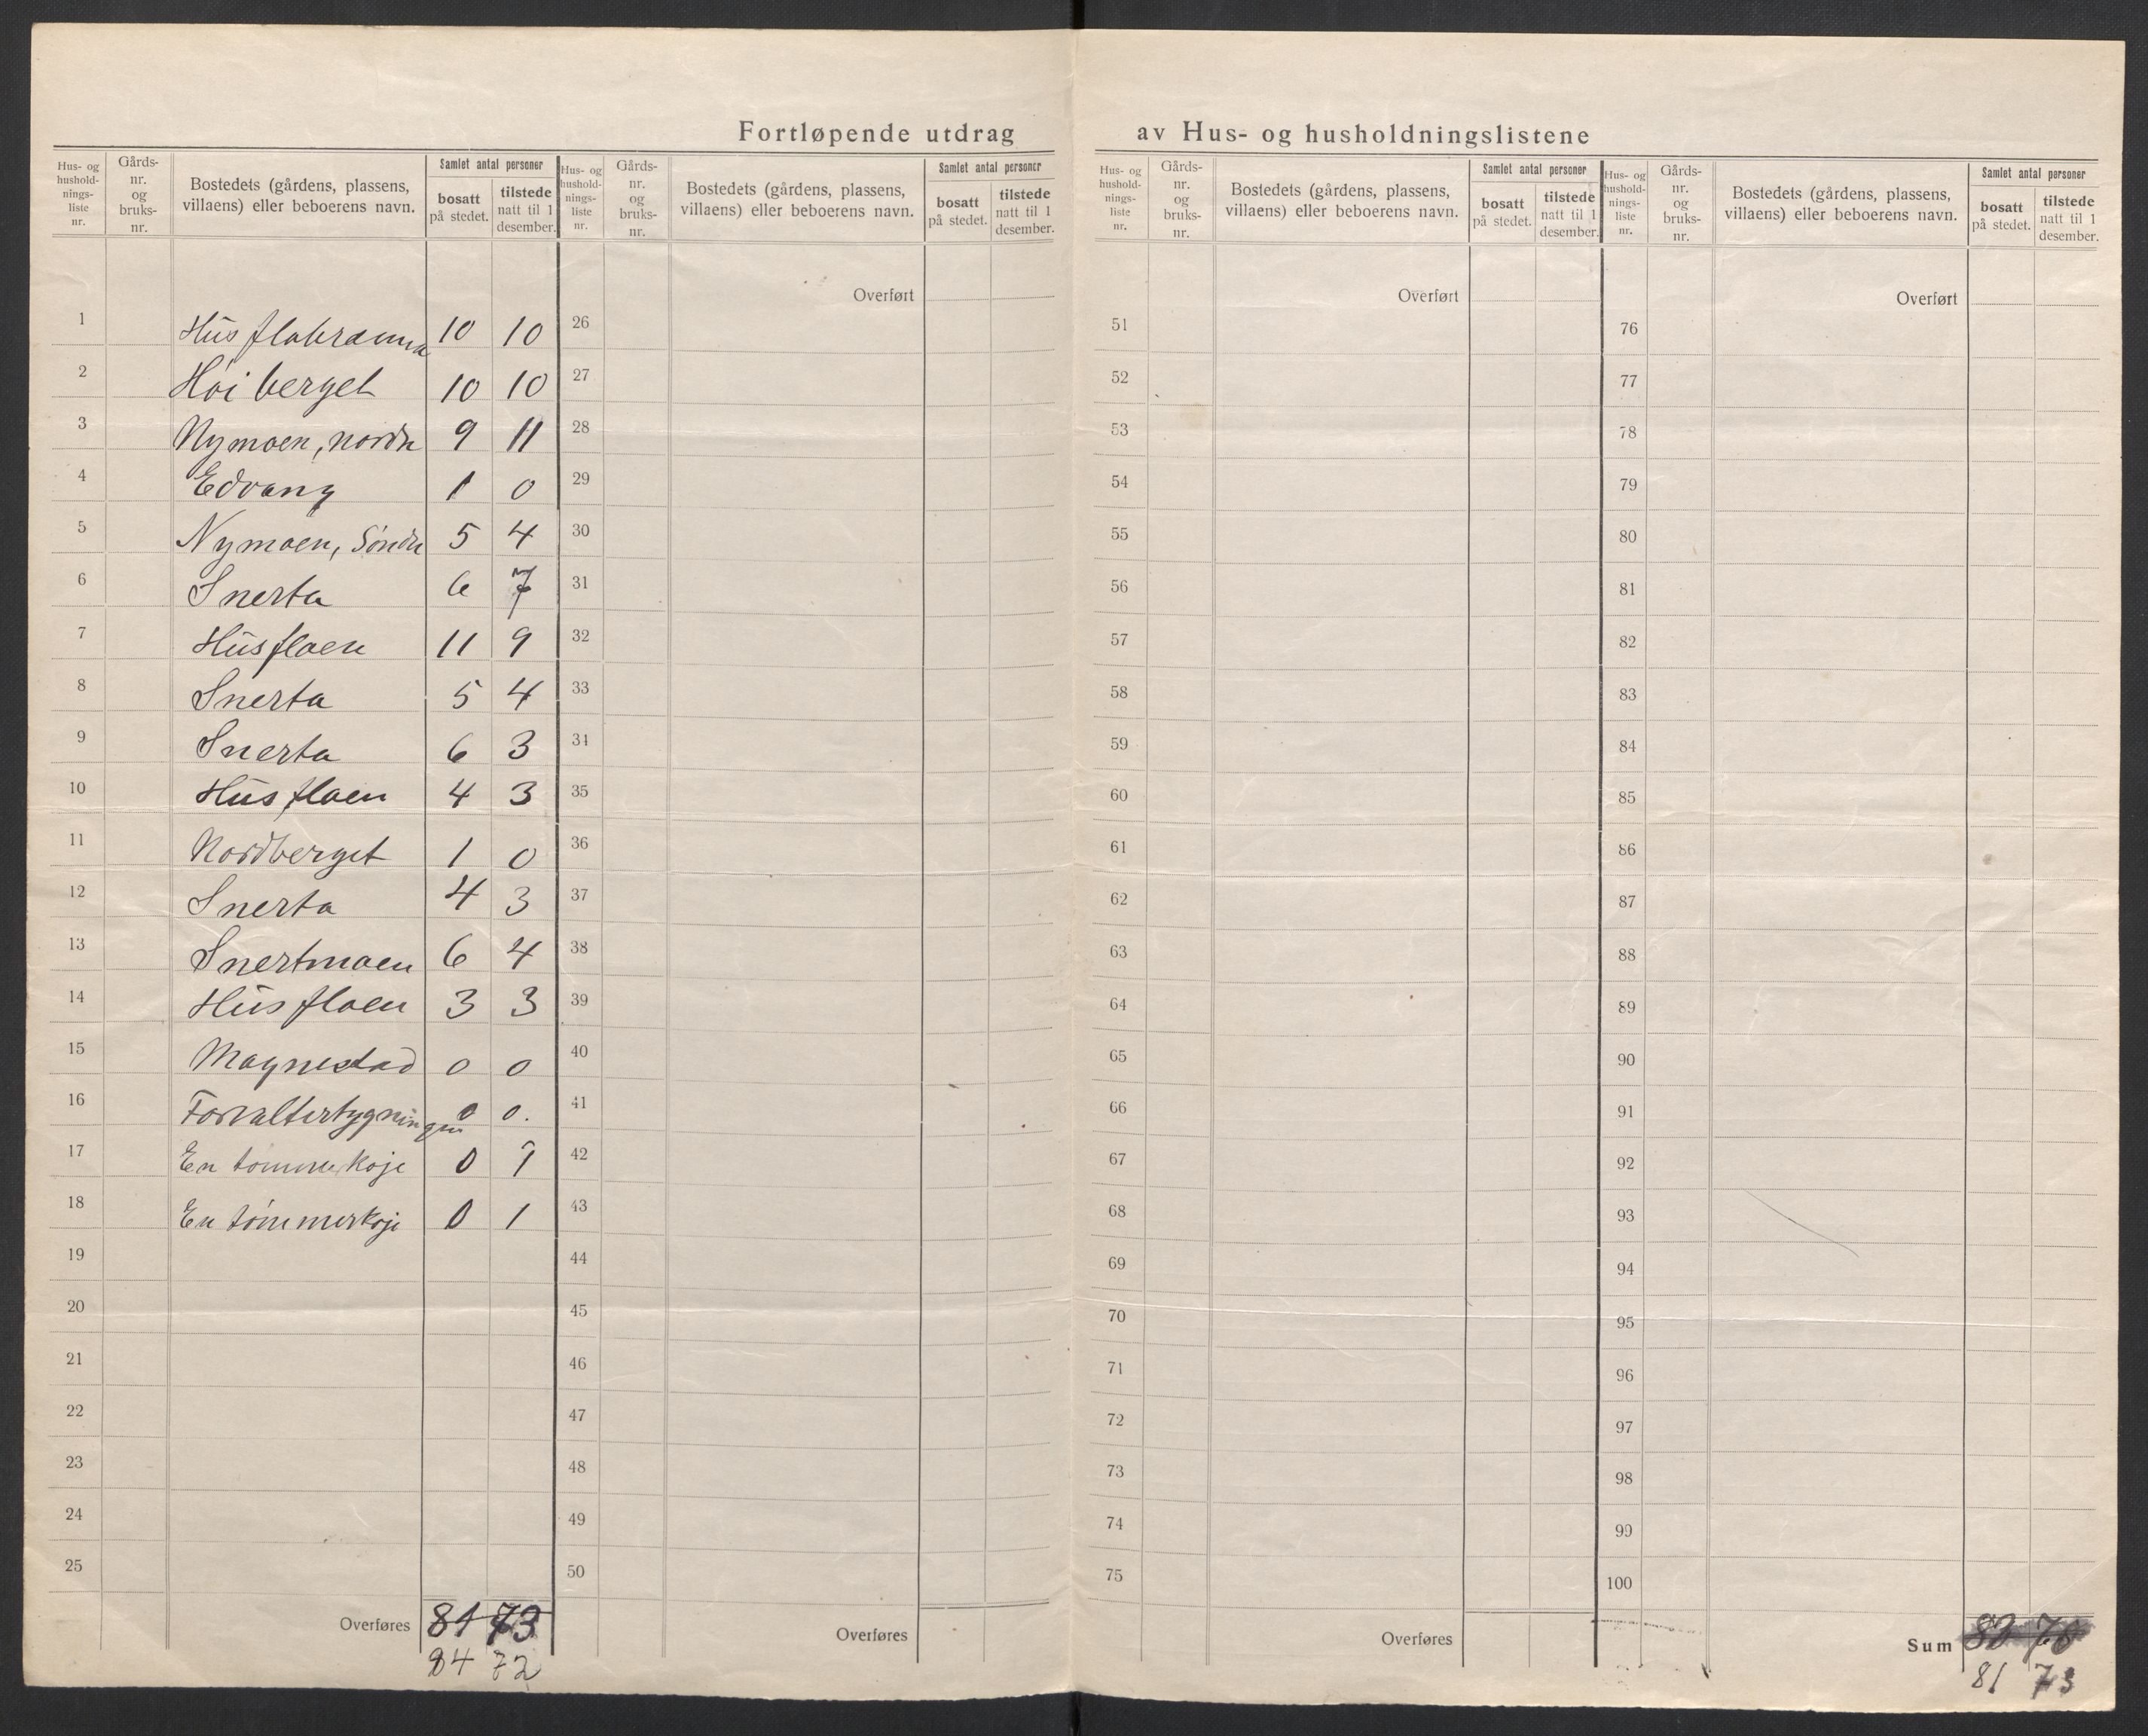 Fortløpende utdrag av Hus- og husholdningslistene
Hus- og hushold-nings-liste nr. Gårds-nr. og bruks-nr. Bostedets (gårdens, plassens, villaens) eller beboerens navn. Samlet antal personer bosatt på stedet. tilstede natt til 1 desember.
Hus- og hushold-nings-liste nr. Gårds-nr. og bruks-nr. Bostedets (gårdens, plassens, villaens) eller beboerens navn. Samlet antal personer bosatt på stedet. tilstede natt til 1 desember.
Hus- og hushold-nings-liste nr. Gårds-nr. og bruks-nr. Bostedets (gårdens, plassens, villaens) eller beboerens navn. Samlet antal personer bosatt på stedet. tilstede natt til 1 desember.
Hus- og hushold-nings-liste nr. Gårds-nr. og bruks-nr. Bostedets (gårdens, plassens, villaens) eller beboerens navn. Samlet antal personer bosatt på stedet. tilstede natt til 1 desember.
Overført Overført Overført
1 10 10 26 51 76
2 Høiberget 10 10 27 52 77
3 Nymoen, nordre 9 11 28 53 78
4 Edvang 1 0 29 54 79
5 Nymoen, Søndre 5 4 30 55 80
6 Snerta 6 7 31 56 81
7 Husfloen 11 9 32 57 82
8 Snerta 5 4 33 58 83
9 Snerta 6 3 34 59 84
10 Husfloen 4 3 35 60 85
11 Nordberget 1 0 36 61 86
12 Snerta 4 3 37 62 87
13 Snertmoen 6 4 38 63 88
14 Husfloen 3 3 39 64 89
15 Magnestad 0 0 40 65 90
16 Forvalterbygningen 0 0. 41 66 91
17 En tømmerkoje 0 1 42 67 92
18 En tømmerkoje 0 1 43 68 93
19 44 69 94
20 45 70 95
21 46 71 96
22 47 72 97
23 48 73 98
24 49 74 99
25 50 75 100
Overføres 81 73 Overføres Overføres Sum
84 72 81 73